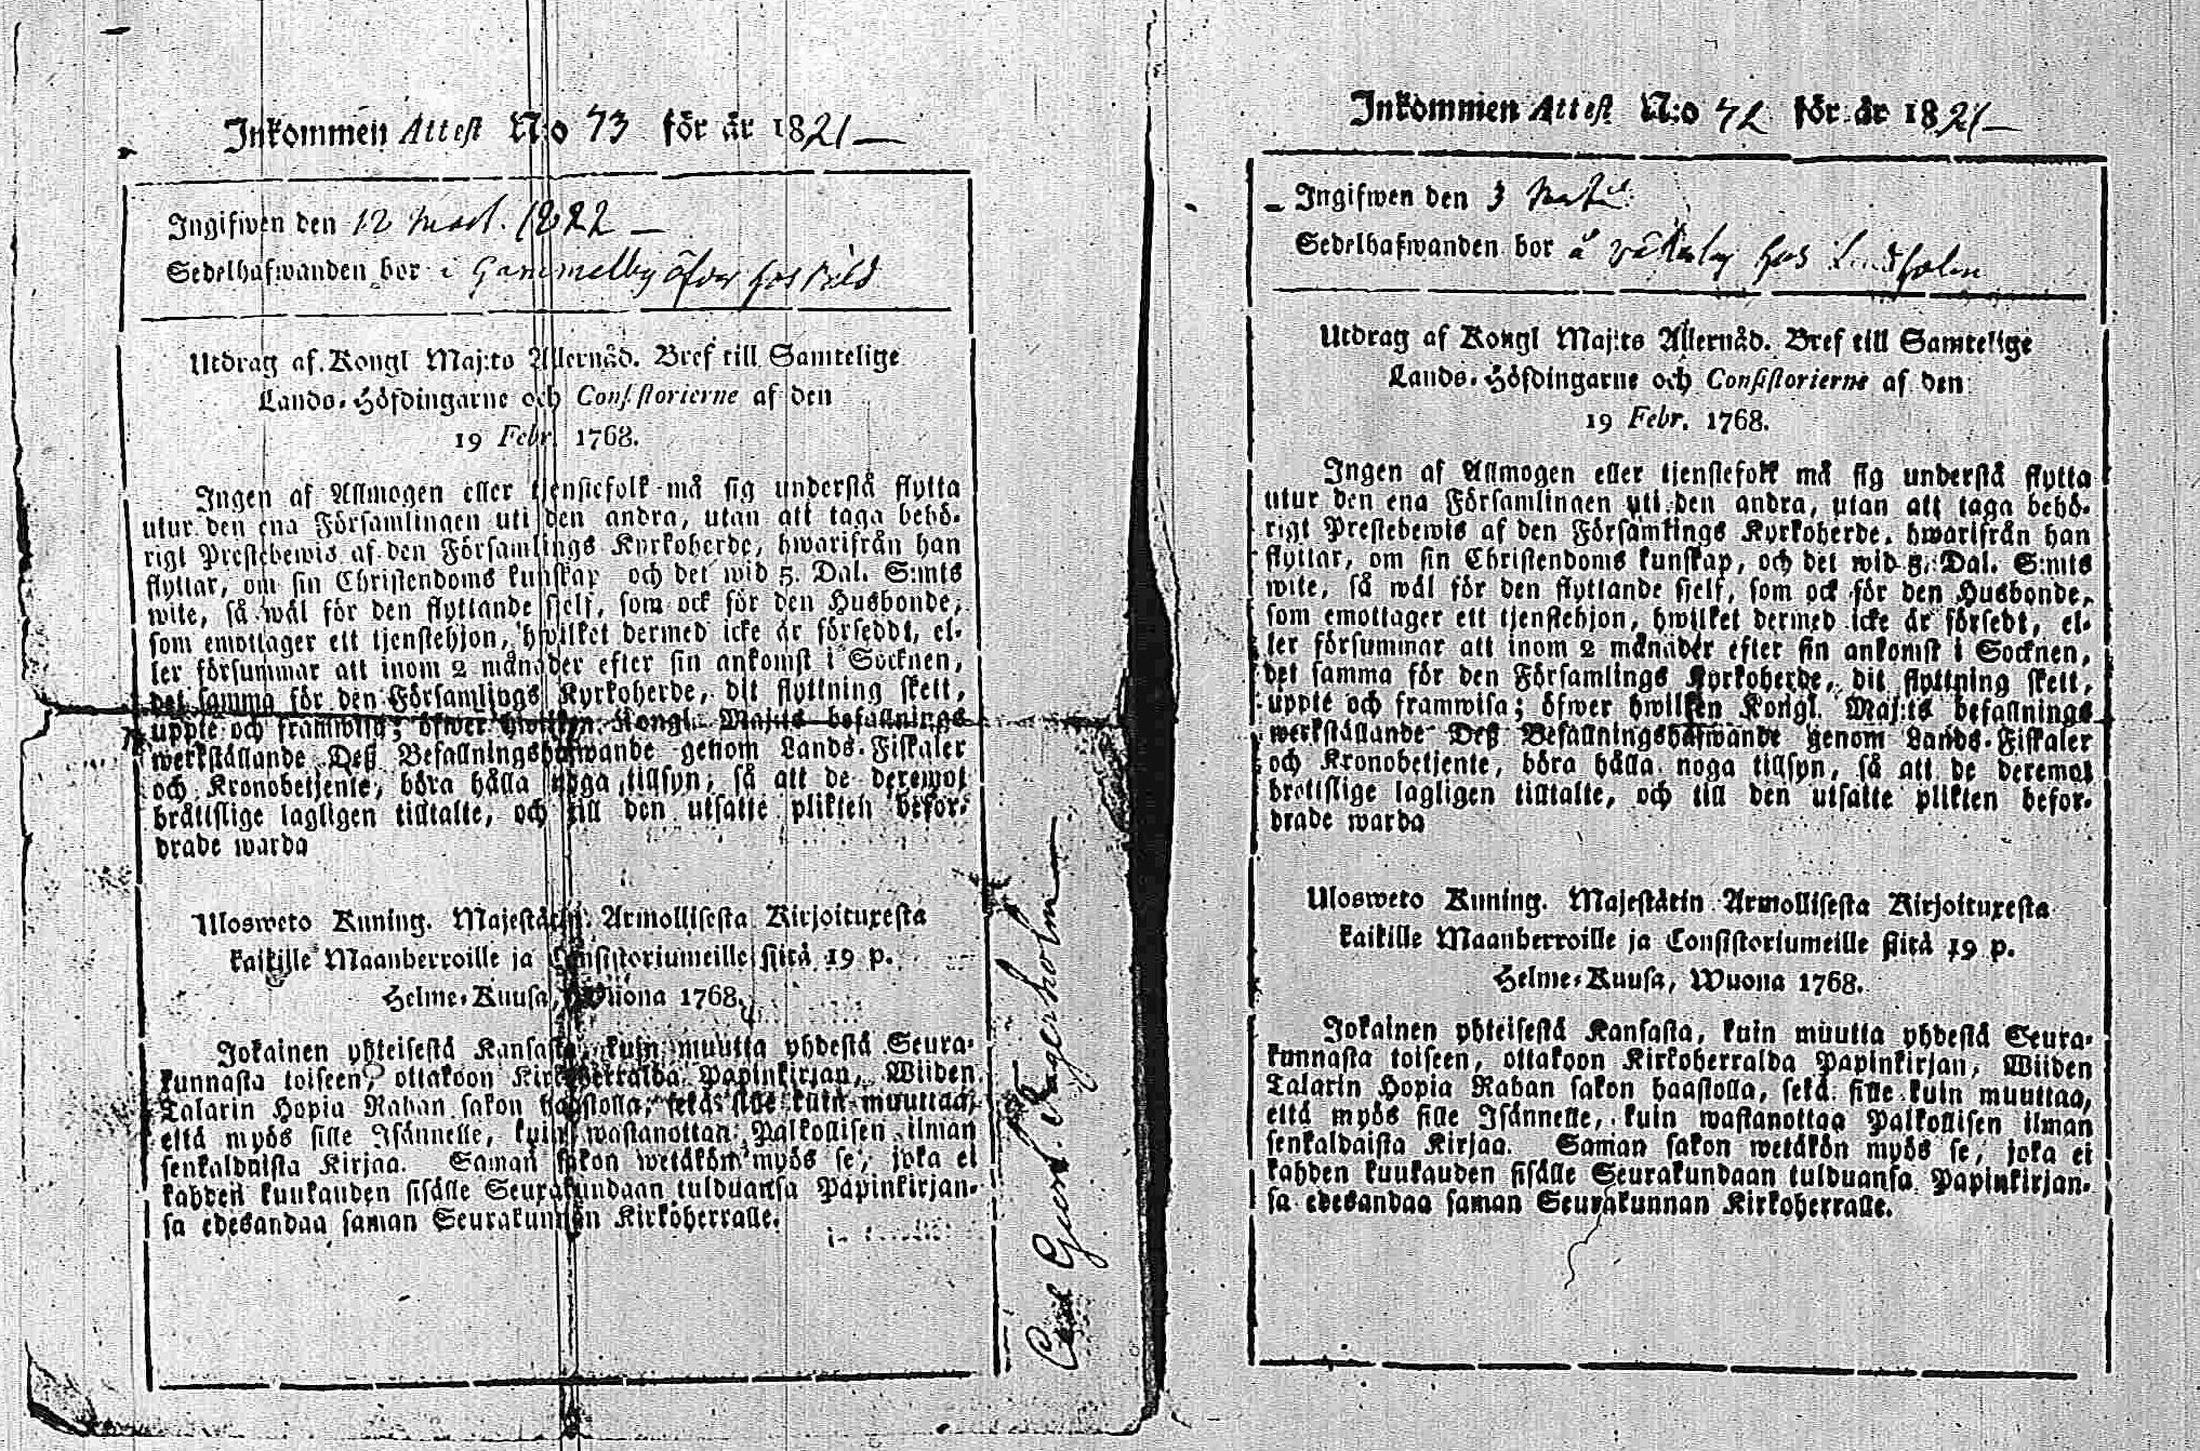 Inkommen Attest N:o 73 för år 1821 —
Ingifwen den 12 Mart. 1822 —
Sedelhafwanden bor i Gammelby öfver hos
Utdrag af Kongl Maj:ts Allernåd. Bref till Samtelige
Lands-Höfdingarne och Consistorierne af den
19 Febr. 1768.
Ingen af Allmogen eller tjenstefolk må sig understå flytta
utur den ena Församlingen uti den andra, utan att taga behö-
rigt Prestebewis af den Församlings Kyrkoherde, hwarifrån han
flyttar, om sin Christendoms kunskap och det wid 5. Dal. S:mts
wite, så wäl för den flyttande sjelf, som ock för den Husbonde,
som emottager ett tjenstehjon, hwilket dermed icke är förseddt, el-
ler försummar att inom 2 månader efter sin ankomst i Socknen,
det samma för den Församlings Kyrkoherde, dit flyttning skett,
uppte och framwisa; öfwer hwilken Kongl. Maj:ts befallnings
werkställande Deß Befallningshafwande genom Lands-Fiskaler
och Kronobetjente, böra hålla noga tillsyn, så att de deremot
bråttslige lagligen tilltalte, och till den utsatte plikten befor-
drade warda
Ulosweto Kuning. Majestätin Armollisesta Kirjoituxesta
kaikille Maanherroille ja Consistoriumeille siitä 19 p.
Helme-Kuusa, Wuona 1768.
Jokainen yhteisestä Kansasta, kuin muutta yhdestä Seura-
kunnasta toiseen, ottakoon Kirkoherralda Papinkirjan, Wiiden
Talarin Hopia Rahan sakon haastolla, sekä sille kuin muuttaa,
että myös sille Isännelle, kuin wastanottaa Palkollisen ilman
senkaldaista Kirjaa. Saman sakon wetäkön myös se, joka ei
kahden kuukauden sisälle Seurakundaan tulduansa Papinkirjan-
sa edesandaa saman Seurakunnan Kirkoherralle.
Carl Gust. Fagerholm
Inkommen Attest N:o 72 för år 1821 —
Ingifwen den 3
Sedelhafwanden bor å hos Lindholm
Utdrag af Kongl Maj:ts Allernåd. Bref till Samtelige
Lands-Höfdingarne och Consistorierne af den
19 Febr. 1768.
Ingen af Allmogen eller tjenstefolk må sig understå flytta
utur den ena Församlingen uti den andra, utan att taga behö-
rigt Prestebewis af den Församlings Kyrkoherde, hwarifrån han
flyttar, om sin Christendoms kunskap, och det wid 5. Dal. S:mts
wite, så wäl för den flyttande sjelf, som ock för den Husbonde,
som emottager ett tjenstehjon, hwilket dermed icke är försedt, el-
ler försummar att inom 2 månader efter sin ankomst i Socknen,
det samma för den Församlings Kyrkoherde, dit flyttning skett,
uppte och framwisa; öfwer hwilken Kongl. Maj:ts befallnings
werkställande Deß Befallningshafwande genom Lands-Fiskaler
och Kronobetjente, böra hålla noga tillsyn, så att de deremot
brottslige lagligen tilltalte, och till den utsatte plikten befor-
drade warda
Ulosweto Kuning. Majestätin Armollisesta Kirjoituxesta
kaikille Maanherroille ja Consistoriumeille siitä 19 p.
Helme-Kuusa, Wuona 1768.
Jokainen yhteisestä Kansasta, kuin muutta yhdestä Seura-
kunnasta toiseen, ottakoon Kirkoherralda Papinkirjan, Wiiden
Talarin Hopia Rahan sakon haastolla, sekä sille kuin muuttaa,
että myös sille Isännelle, kuin wastanottaa Palkollisen ilman
senkaldaista Kirjaa. Saman sakon wetäkön myös se, joka ei
kahden kuukauden sisälle Seurakundaan tulduansa Papinkirjan-
sa edesandaa saman Seurakunnan Kirkoherralle.